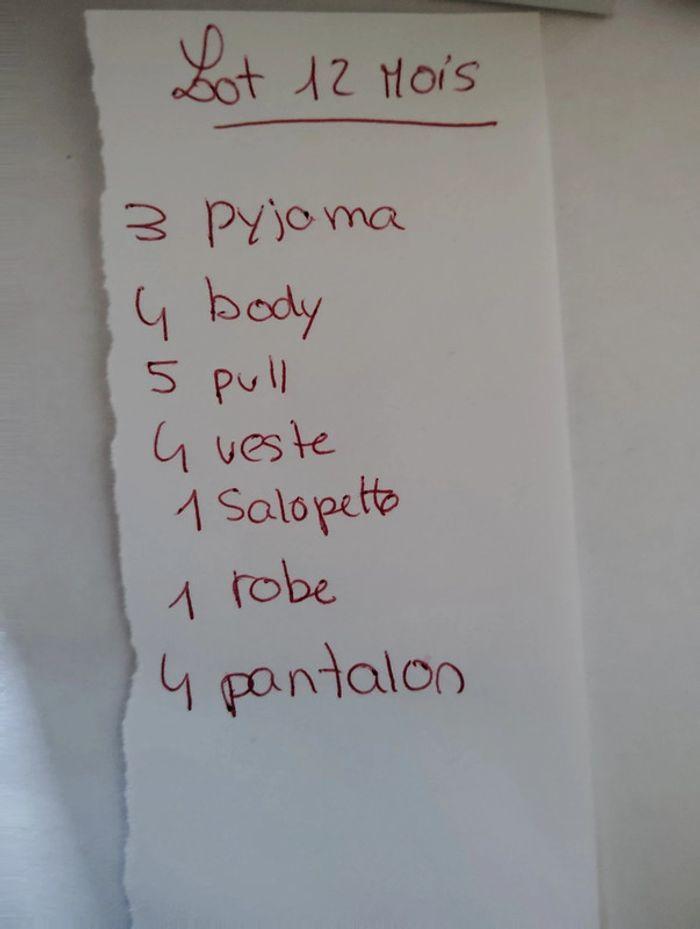 Lot 12 Mois
3 pyjama
4 body
5 pull
4 veste
1 Salopette
1 robe
4 pantalon